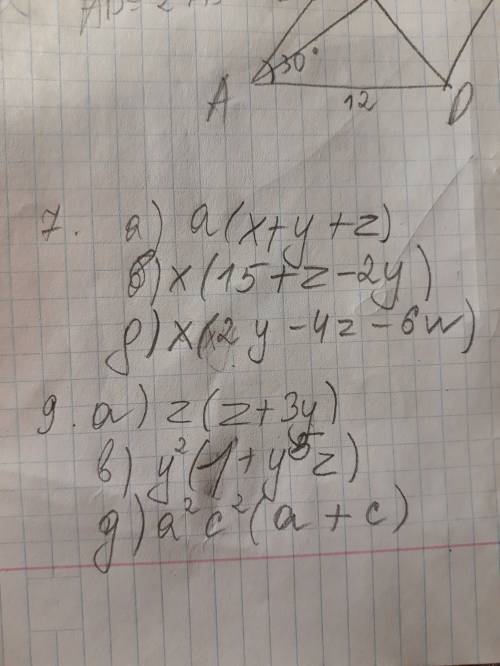 A 30° 12 D
7. а) a(x+y+z)
в) x(15+z-2y)
д) x(2y-4z-6w)
9. а) z(z+3y)
в) y²(1+y⁵z)
д) a²c²(a+c)